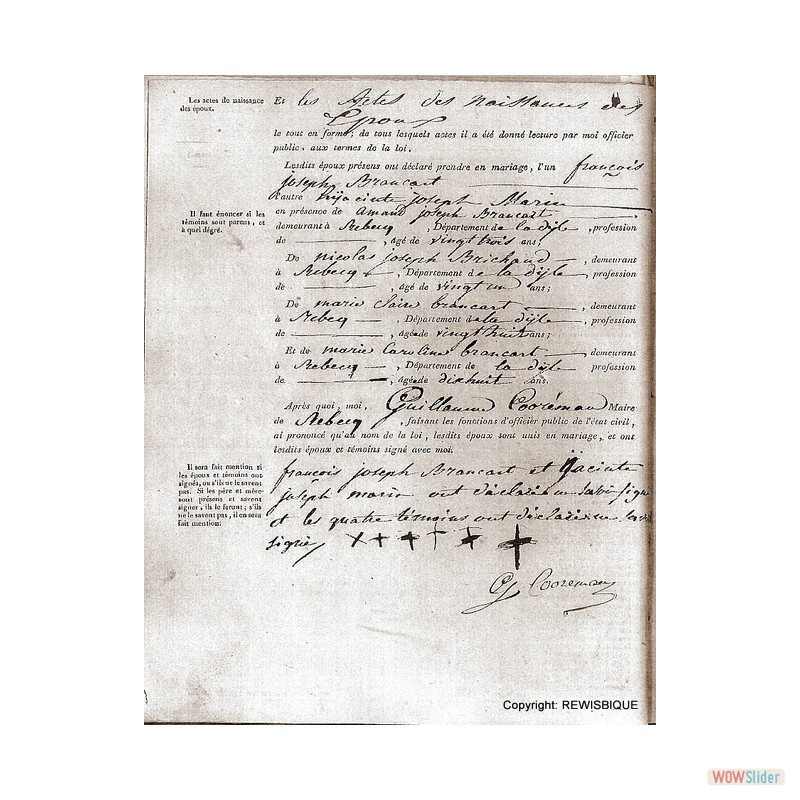 Les actes de naissance
des époux.
Et les Actes des naissances des
Epoux
le tout en forme; de tous lesquels actes il a été donné lecture par moi officier
public, aux termes de la loi.
Lesdits époux présens ont déclaré prendre en mariage, l'un françois
joseph Brancart
l'autre hÿacinte joseph Marin
Il faut énoncer si les
témoins sont parens, et
à quel dégré.
en présence de amand joseph Brancart
demeurant à Rebecq, Département de la dÿle, profession
de , âgé de vingt trois ans;
De nicolas joseph Brichaud, demeurant
à Rebecq, Département de la dÿle, profession
de , âgé de vingt un ans;
De marie claire brancart, demeurant
à Rebecq, Département de la dÿle, profession
de , âgé de vingt huit ans;
Et de marie Caroline brancart demeurant
à Rebecq, Département de la dÿle profession
de , âgé de dix huit ans.
Après quoi, moi, Guillaume Cooréman Maire
de Rebecq, faisant les fonctions d'officier public de l'état civil,
ai prononcé qu'au nom de la loi, lesdits époux sont unis en mariage, et ont
lesdits époux et témoins signé avec moi.
Il sera fait mention si
les époux et témoins ont
signés, ou s'ils ne le savent
pas. Si les père et mère
sont présens et savent
signer, ils le feront; s'ils
ne le savent pas, il en sera
fait mention.
françois joseph Brancart et hÿacinte
joseph marin ont déclaré ne savoir signé
et les quatre témoins ont déclaré ne
signé
G Cooreman
Copyright: REWISBIQUE
WOWSlider